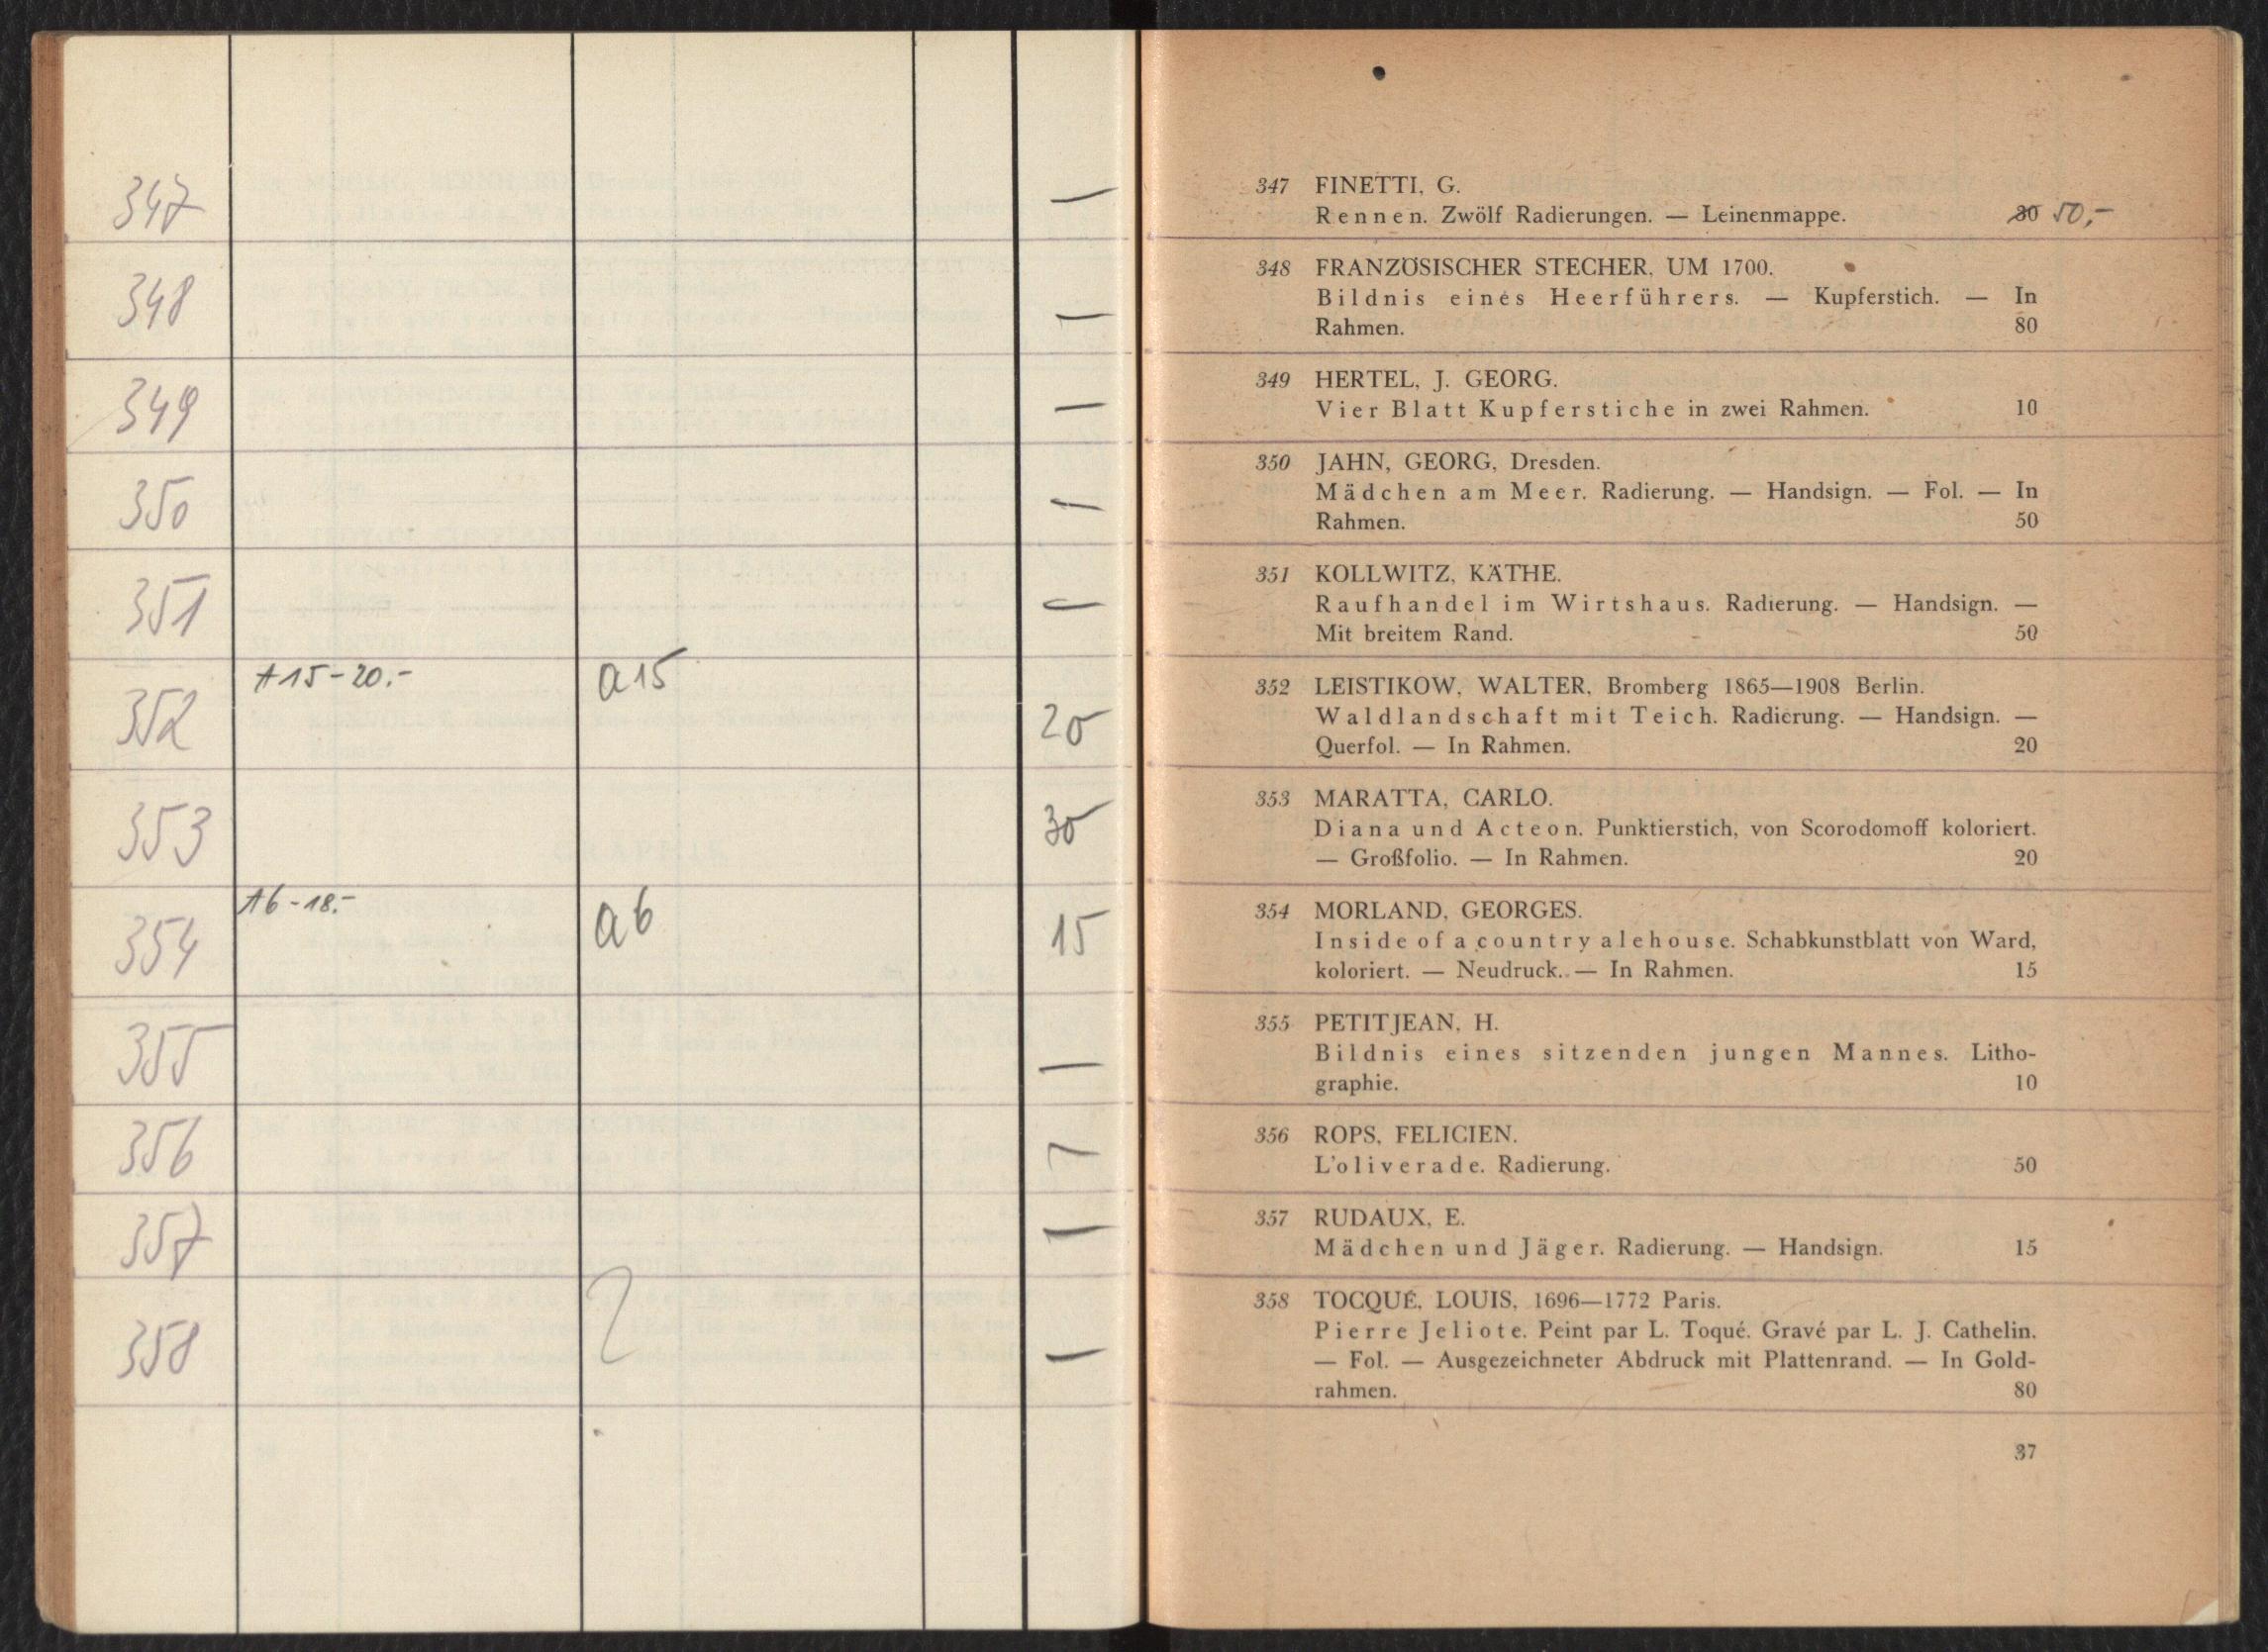 347 —
348 —
349 —
350 —
351 —
352 A15-20.- a15 20
353 30
354 A6-18.- a6 15
355 —
356 —
357 —
358 —
347 FINETTI, G.
Rennen. Zwölf Radierungen. — Leinenmappe. 30 50,-
348 FRANZÖSISCHER STECHER, UM 1700.
Bildnis eines Heerführers. — Kupferstich. — In
Rahmen. 80
349 HERTEL, J. GEORG.
Vier Blatt Kupferstiche in zwei Rahmen. 10
350 JAHN, GEORG, Dresden.
Mädchen am Meer. Radierung. — Handsign. — Fol. — In
Rahmen. 50
351 KOLLWITZ, KÄTHE.
Raufhandel im Wirtshaus. Radierung. — Handsign. —
Mit breitem Rand. 50
352 LEISTIKOW, WALTER, Bromberg 1865—1908 Berlin.
Waldlandschaft mit Teich. Radierung. — Handsign. —
Querfol. — In Rahmen. 20
353 MARATTA, CARLO.
Diana und Acteon. Punktierstich, von Scorodomoff koloriert.
— Großfolio. — In Rahmen. 20
354 MORLAND, GEORGES.
Inside of a country alehouse. Schabkunstblatt von Ward,
koloriert. — Neudruck. — In Rahmen. 15
355 PETITJEAN, H.
Bildnis eines sitzenden jungen Mannes. Litho-
graphie. 10
356 ROPS, FELICIEN.
L'oliverade. Radierung. 50
357 RUDAUX, E.
Mädchen und Jäger. Radierung. — Handsign. 15
358 TOCQUÉ, LOUIS, 1696—1772 Paris.
Pierre Jeliote. Peint par L. Toqué. Gravé par L. J. Cathelin.
— Fol. — Ausgezeichneter Abdruck mit Plattenrand. — In Gold-
rahmen. 80
37